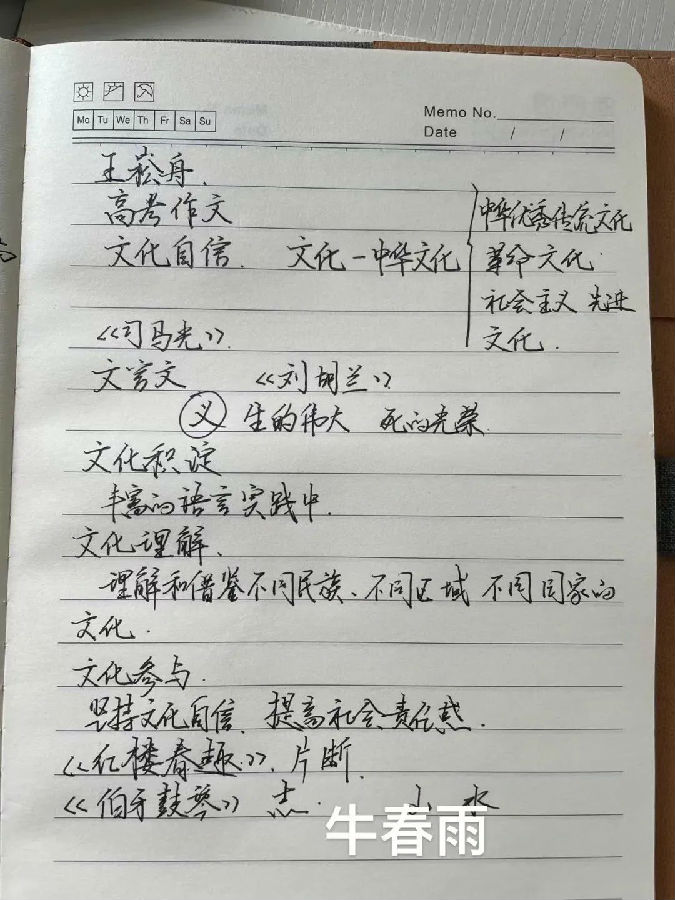 Mo Tu We Th Fr Sa Su
Memo No.
Date / /
王崧舟.
高考作文
文化自信. 文化-中华文化
中华优秀传统文化
革命文化
社会主义 先进
文化.
《司马光》.
文言文 《刘胡兰》
义 生的伟大 死的光荣.
文化积淀
丰富的语言实践中.
文化理解.
理解和借鉴不同民族、不同区域 不同国家的
文化.
文化参与.
坚持文化自信 提高社会责任感.
《红楼春趣》. 片断.
《伯牙鼓琴》 志. 山 水
牛春雨